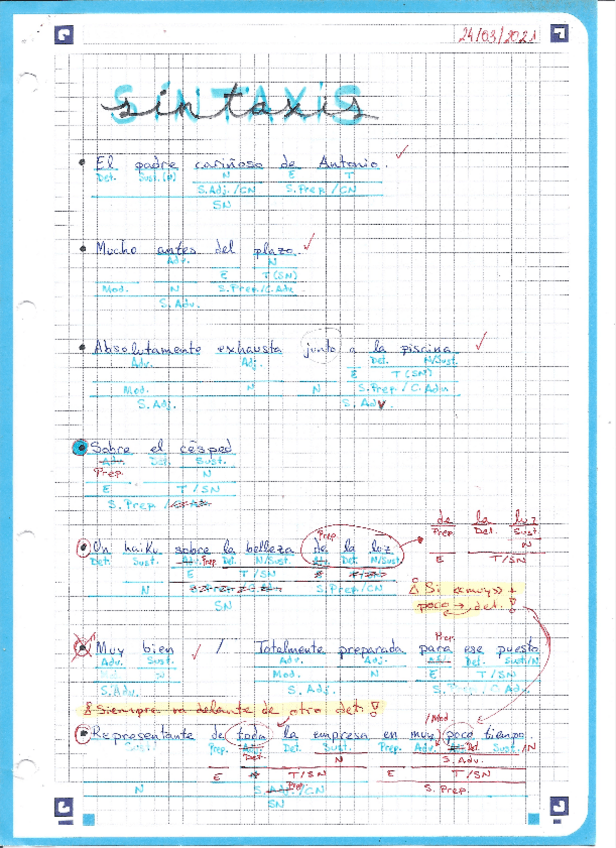 24/03/2021
SINTAXIS
sintaxis
• El padre cariñoso de Antonio.
Det. Sust.(N) N E T
S.Adj./CN S.Prep/CN
SN
• Mucho antes del plazo.
Adv. N
E T(SN)
Mod. N S.Prep/C.Adv
S.Adv.
• Absolutamente exhausta junto a la piscina
Adv. Adj. Det. N/Sust.
E T(SN)
Mod. N N S.Prep/C.Adv
S.Adj. S.Adv
• Sobre el césped
Det. Sust.
Prep. N
E T/SN
S.Prep
de la luz
Prep. Det. Sust
N
E T/SN
• Un haiku sobre la belleza de la luz
Prep
Det. Sust. Prep. Det. N/Sust. Det. N/Sust
E T/SN
N S.Prep/CN
SN
Si «muy» +
poco → det.!
• Muy bien / Totalmente preparada para ese puesto
Prep.
Adv. Sust. Adv. Adj. Det. Sust/N
N Mod. N E T/SN
S.Adv. S.Adj. S.Prep/C.Adj
Siempre va delante de otro det!
/Mod
• Representante de toda la empresa en muy poco tiempo.
Prep. Adj. Det. Sust. Prep. Adv. Det. Sust./N
Det. N S.Adv.
E T/SN E T/SN
N S.Prep/CN S.Prep.
SN